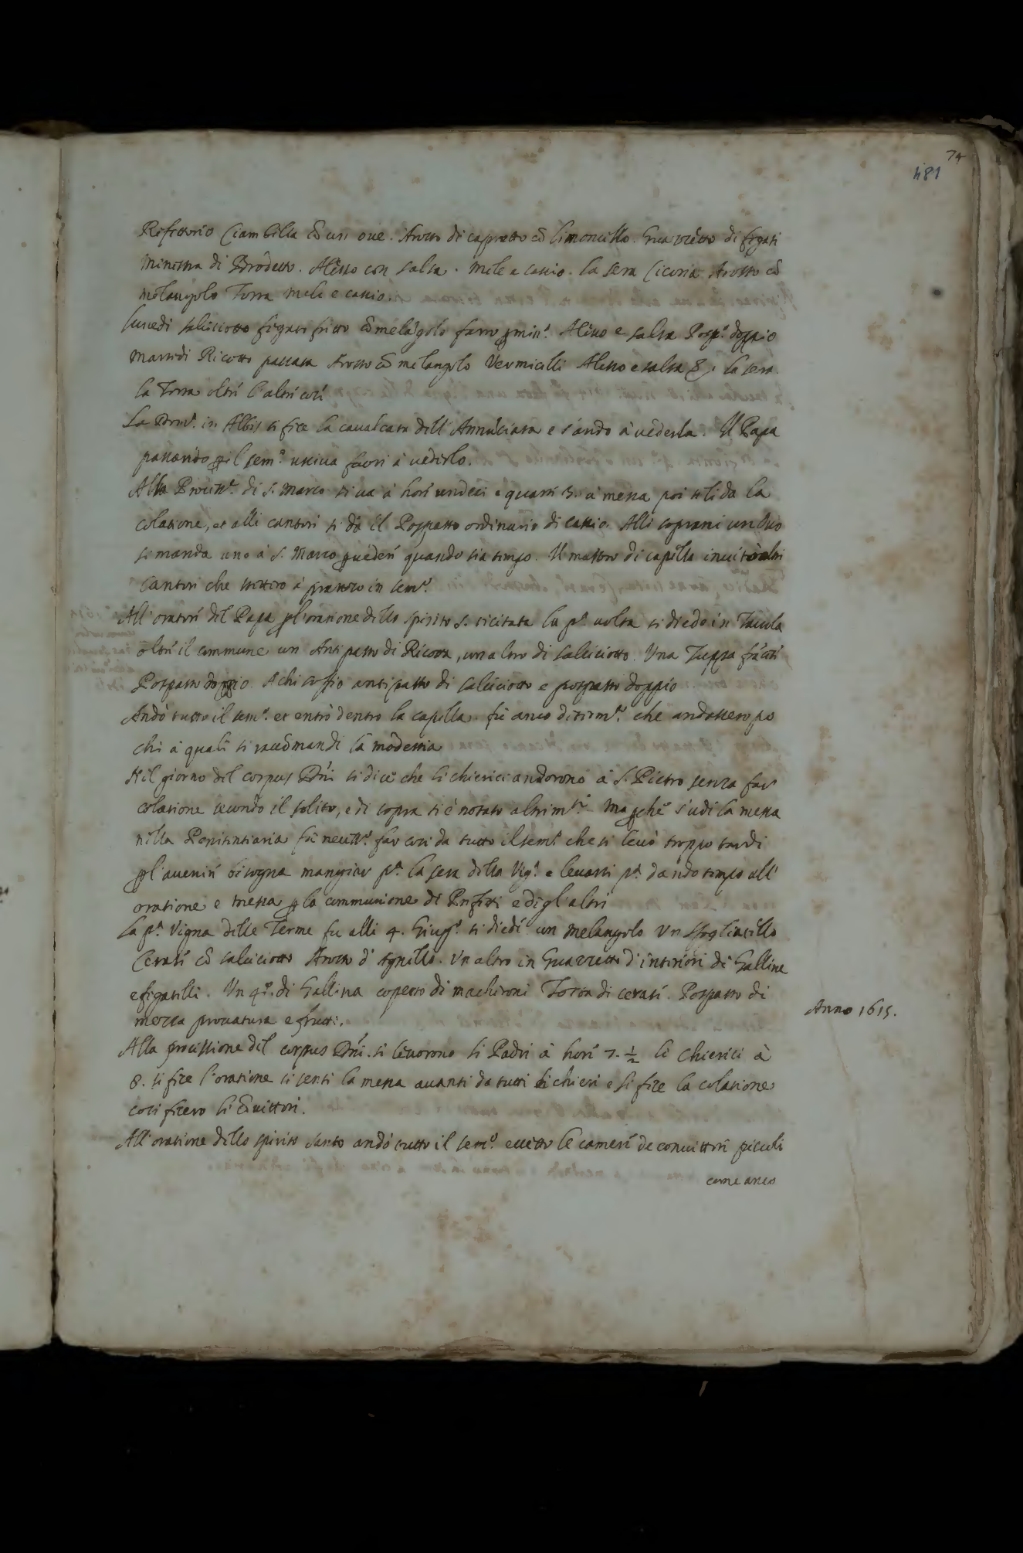 74
481
Refettorio Ciambella cō un oue. Arosto di capretto cō limoncello. Guazzetto di fegati
minestra di Brodetto. Alesso con salsa. mele e cascio. la sera Cicoria Arosto cō
melangolo Torta mele e cascio.
lunedi salciciotto fegato fritto cō melāgolo farro p min.ª Alesso e salsa Posp.º doppio
Martedi Ricotta passata Arosto cō melangolo Vermicelli Alesso e salsa &c. la sera
la Torta oltrē l'altrē cosē
La Dom.ª in Albis si fece la caualcata dell'Annūciata e s'andò à uederla. Il Papa
passando p il sem.º usciua fuori à uederlo.
Alla Process.ᵉ di S. Marco si ua à horē undeci e quarti 3. à messa poi se li da la
colatione, et alli cantori si dà il Pospasto ordinario di cascio. Alli soprani un buo
se manda uno à S. Marco p uederē quando sia tempo. Il mastro di capella inuitò altri
Cantori che stettero à pranzo in sem.º
All'oratorē del Papa p l'oratione dello spirito S. recitata la p.ª uolta si diedo in Tauola
oltrē il commune un Antipasto di Ricotta, un altro di salciciotto. Una Zuppa
Pospasto doppio. A chi antipasto di salciciotto e pospasto doppio
Andò tutto il sem.º et entrò dentro la capella. fu anco che andassero po
chi à quali si raccōmandi la modestia
Nel giorno del corpus Dn̄i si dice che li chierici andorono à S. Pietro senza far
colatione secondo il solito, e di sopra si è notato altrim.ᵗᵉ Ma pchē s'udì la messa
nella Penitentiaria fu necess.º far cosi da tutto il sem.º che si leuò troppo tardi
p l'auenirē bisogna mangiar p.ª la sera della Vig.ª e leuarsi p.ª dando tempo all'
oratione e messa p la communione de Prefetti e degl'altri
La p.ª Vigna delle Terme fu alli 4. Giug.º si diedē un melangolo Un sfogliatello
Cerasē cō salciciotto Arosto d'Agnello. Un altro in Guazzetto d'interiori di Galline
e fegatelli. Un q.º di Gallina coperto di macheroni Torta di cerasē. Pospasto di
mezza prouatura e frutti.
Anno 1615.
Alla processione del corpus Dn̄i. si leuorono li Padri à horē 7. ½ li chierici à
8. si fece l'oratione si sentì la messa auanti da tutti li chierici e si fece la colatione
cosi fecero li cōuittori.
All'oratione dello spirito santo andò tutto il sem.º eccetto le camerē de conuittorē piccoli
come anco